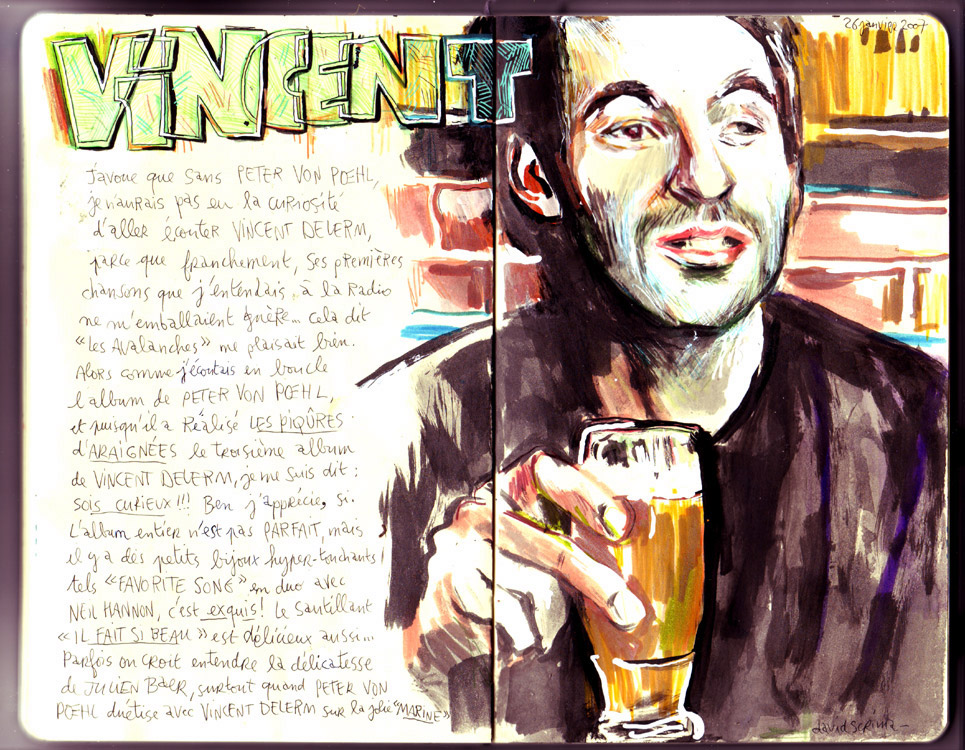 VINCENT
26 janvier 2007
J'avoue que sans PETER VON PŒHL,
je n'aurais pas eu la curiosité
d'aller écouter VINCENT DELERM,
parce que franchement, ses premières
chansons que j'entendais à la radio
ne m'emballaient guère... cela dit
«Les Avalanches» me plaisait bien.
Alors comme j'écoutais en boucle
l'album de PETER VON PŒHL,
et puisqu'il a Réalisé LES PIQÛRES
d'ARAIGNÉES le troisième album
de VINCENT DELERM, je me suis dit :
sois curieux !!! Ben j'apprécie, si.
L'album entier n'est pas PARFAIT, mais
il y a des petits bijoux hyper-touchants
tels «FAVORITE SONG» en duo avec
NEIL HANNON, c'est exquis! Le Sautillant
«IL FAIT SI BEAU» est délicieux aussi...
Parfois on croit entendre la délicatesse
de JULIEN BAER, surtout quand PETER VON
PŒHL duétise avec VINCENT DELERM sur la jolie "MARINE"
david scrima